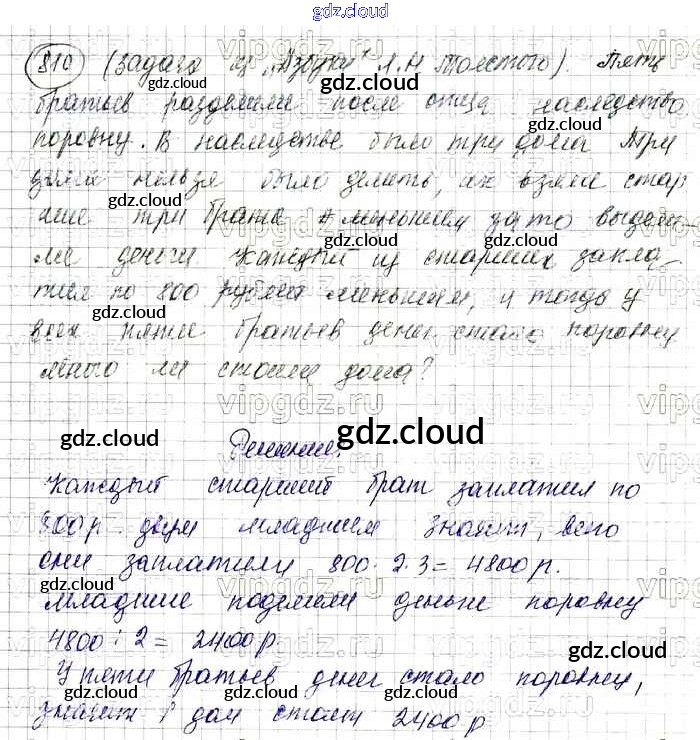 gdz.cloud
810 (Задача из „Азбуки" Л.Н Толстого). Пять
братьев разделили после отца наследство
поровну. В наследстве было три дома Три
дома нельзя было делить, их взяли стар
шие три брата А меньшим за то выдели
ли деньги. Каждый из старших запла
тил по 800 рублей меньшим, и тогда у
всех пяти братьев денег стало поровну
много ли стоили дома?
Решение:
Каждый старший брат заплатил по
800 р. двум младшим значит, всего
они заплатили 800 · 2 · 3 = 4800 р.
Младшие поделили деньги поровну
4800 : 2 = 2400 р.
У пяти братьев денег стало поровну,
значит 1 дом стоит 2400 р